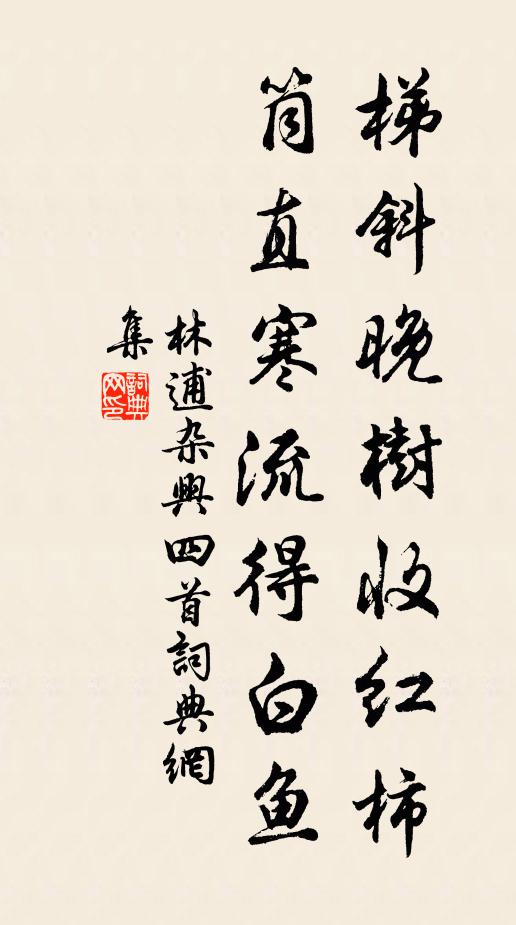 梯斜晚樹收红柿
筒直寒流得白鱼
林逋杂興四首詞典網
集
詞典网印